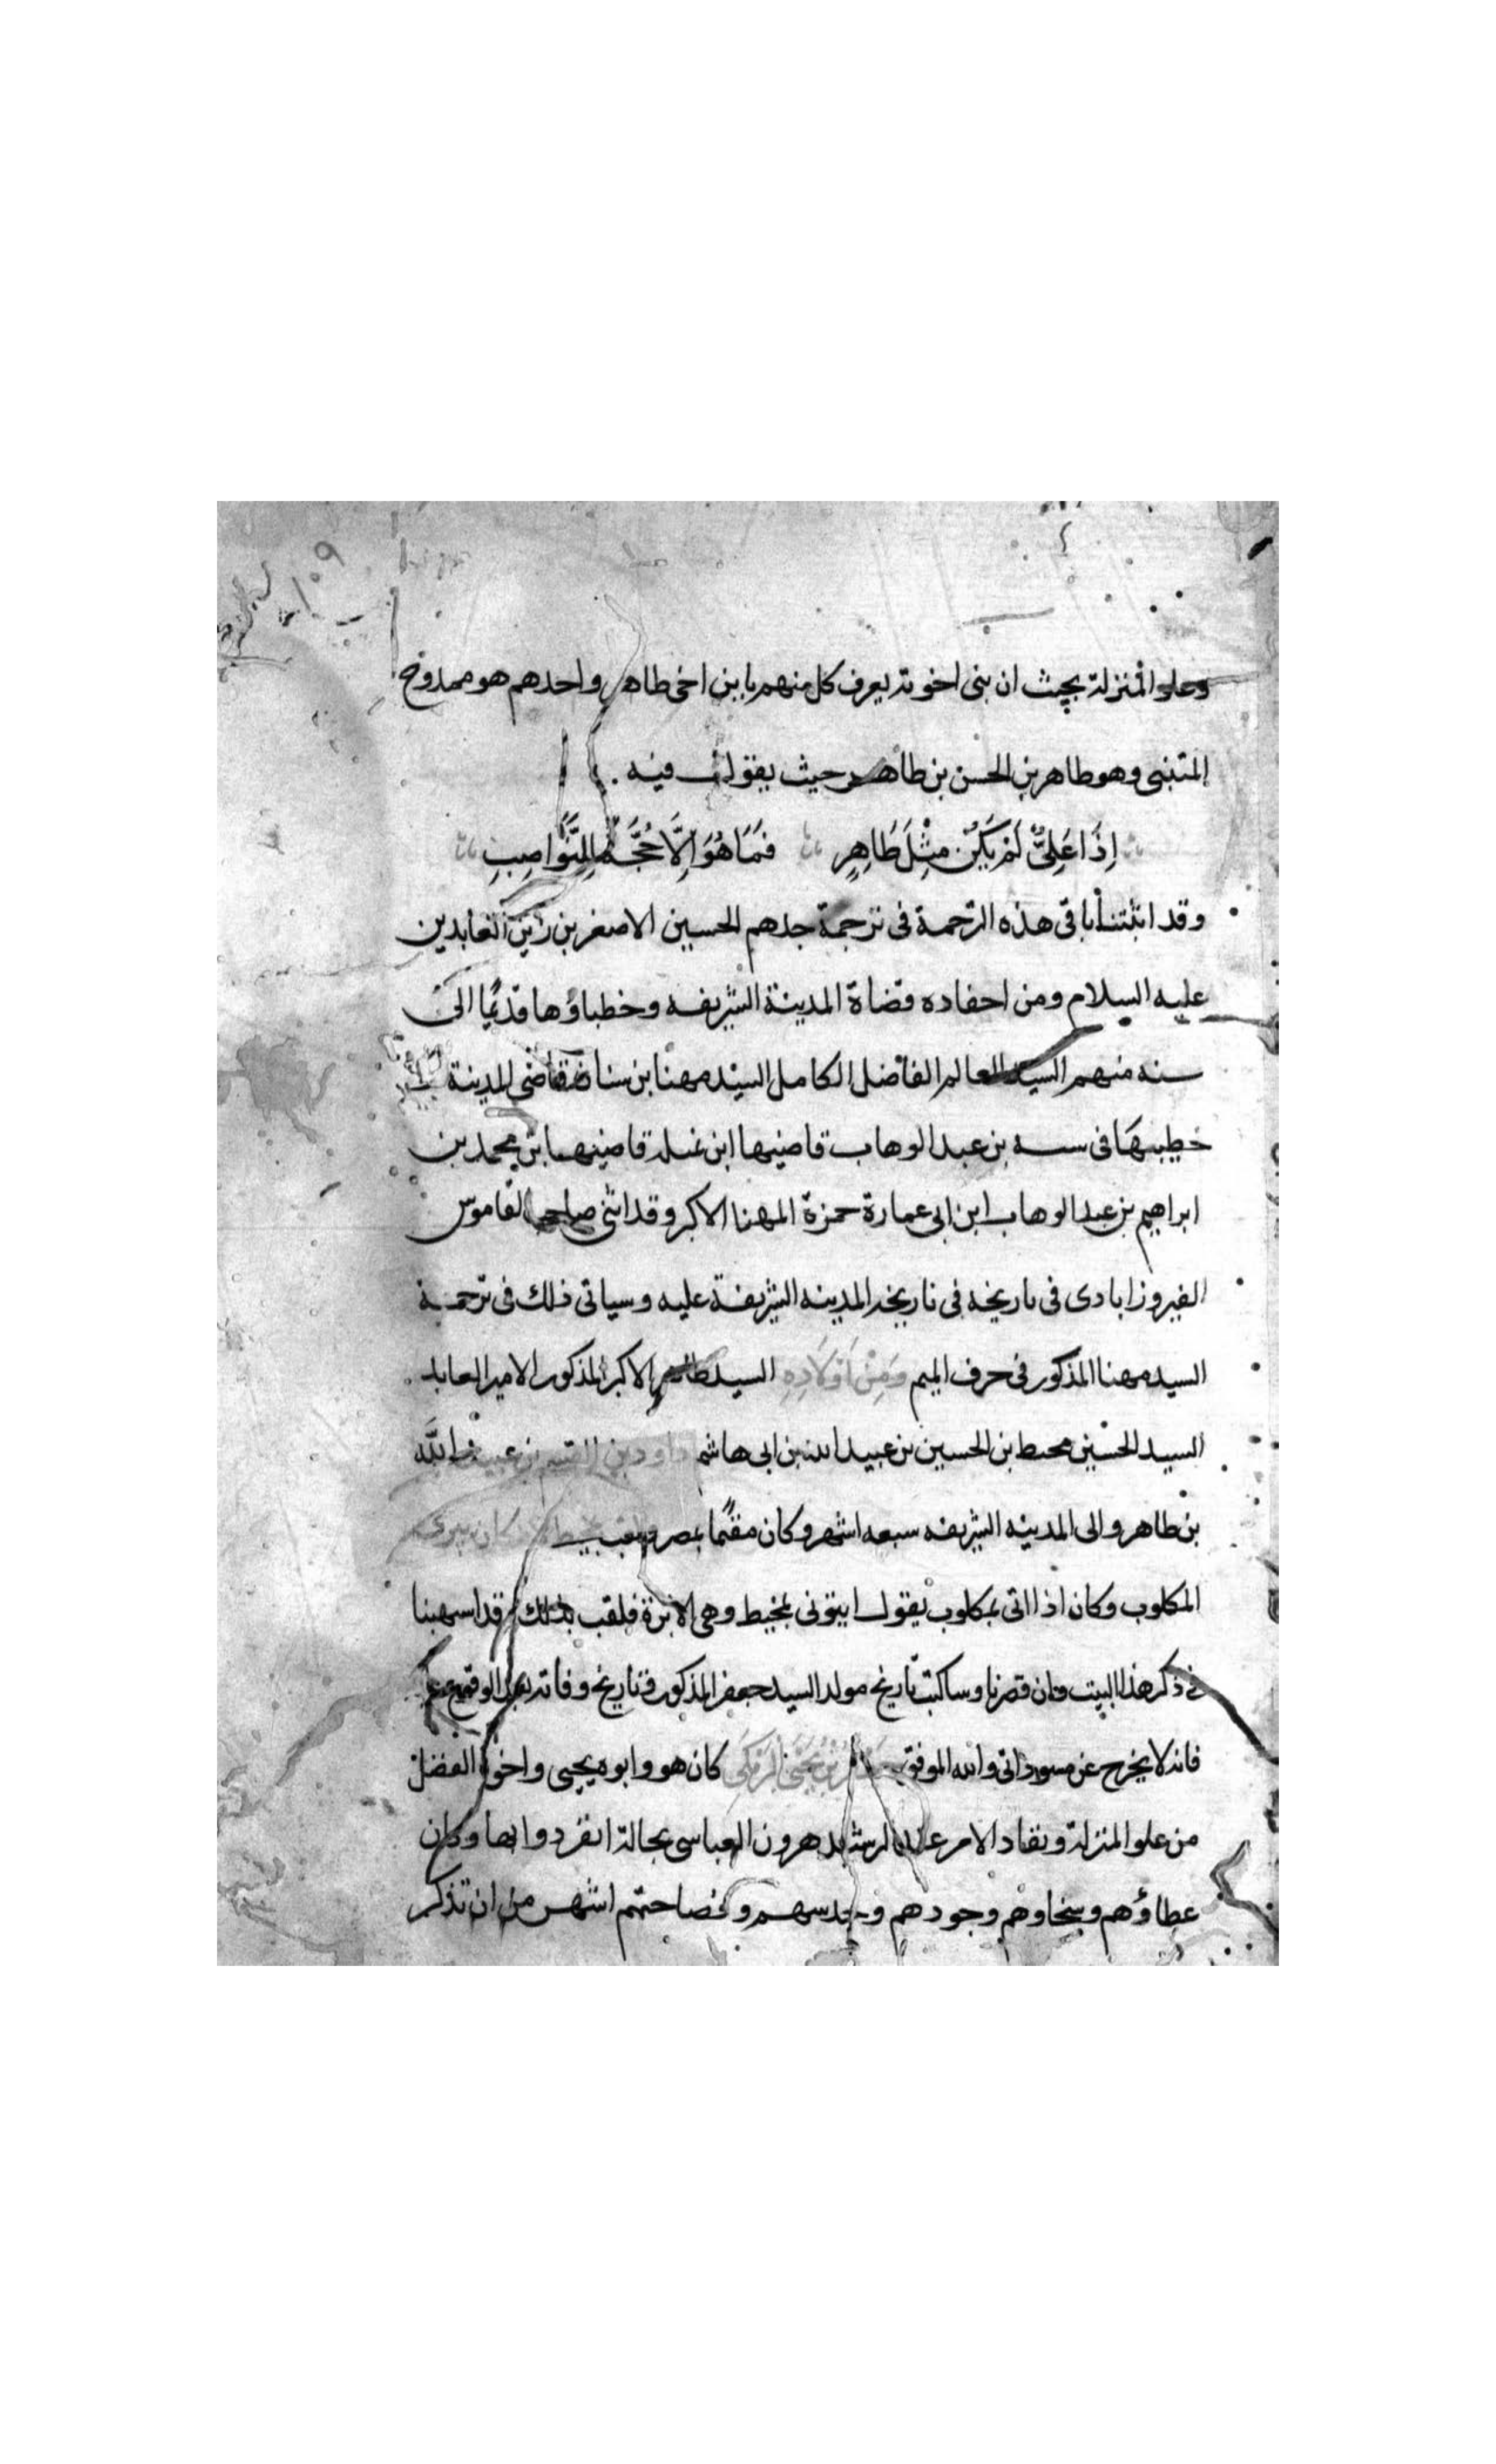 ١٠٩
وعلو المنزلة بحيث ان بنى اخوته يعرف كل منهم بابن اخى طاهر واحدهم هو ممدوح
المتنبى وهو طاهر بن الحسن بن طاهر حيث يقول فيه .
اِذَا عَلِىٌّ لَمْ يَكُنْ مِثْلَ طَاهِرٍ فَمَا هُوَ اِلَّا حُجَّةٌ لِلنَّوَاصِبِ
وقد اثبتنا باقى هذه الترجمة فى ترجمة جدهم الحسين الاصغر بن زين العابدين
عليه السلام ومن احفاده قضاة المدينة الشريفه وخطباؤها قديمًا الى
سنه منهم السيد العالم الفاضل الكامل السيد مهنا بن سنان قاضى المدينة
خطيبها فى سنه بن عبد الوهاب قاضيها ابن نميله قاضيها بن محمد بن
ابراهيم بن عبد الوهاب ابن ابى عمارة حمزة المهنا الاكبر وقد اثنى صاحب القاموس
الفيروزابادى فى تاريخه فى تاريخه المدينه الشريفة عليه وسياتى ذلك فى ترجمة
السيد مهنا المذكور فى حرف الميم وَمِنْ اَوْلَادِهِ السيد طاهر الاكبر المذكور الامير العابد
السيد الحسين محيط بن الحسين بن عبيد الله بن ابى هاشم داود بن القسم بن عبيد الله
بن طاهر والى المدينه الشريفه سبعه اشهر وكان مقيمًا بمصر كان يبرى
المكلوب وكان اذا اتى بمكلوب يقول ايتونى بمخيط وهى الابرة فلقب بذلك وقد اسهبنا
فى ذكر هذا البيت وان قصرنا وساكتب تاريخ مولد السيد جعفر المذكور وتاريخ وفاته بعد الوقوع
فانه لا يخرج عن مسوداتى والله الموفق جَعْفَرُ بْنُ يَحْيَى الْبَرْمَكِى كان هو وابوه يحيى واخوه الفضل
من علو المنزلة ونفاد الامر عند الرشيد هرون العباسى بحالة انفردوا بها وكان
عطاؤهم وسخاوهم وجودهم وفصاحتهم اشهر من ان تذكر